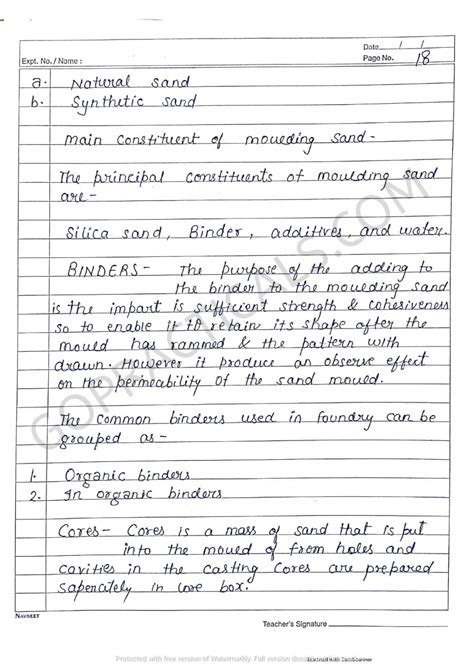 Date / /
Expt. No. / Name :
Page No. 18
a. Natural sand
b. Synthetic sand
main constituent of moueding sand-
The principal constituents of moulding sand
are-
Silica sand, Binder, additives, and water.
BINDERS- The purpose of the adding to
the binder to the moueding sand
is the impart is sufficient strength & cohesiveness
so to enable it to retain its shape after the
mould has rammed & the pattern with
drawn. However it produce an observe effect
on the permeability of the sand moued.
The common binders used in foundry can be
grouped as-
1. Organic binders
2. In organic binders
Cores- Cores is a mass of sand that is put
into the moued of from holes and
cavities in the casting Cores are prepared
sapencitely in core box.
NAVNEET
Teacher's Signature
GOPRACTICALS.COM
Protected with free version of Watermarkly. Full version doesn't
Scanned with CamScanner